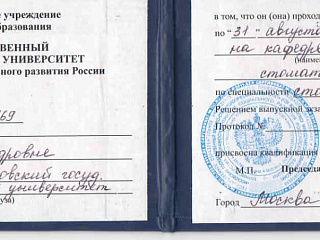 е учреждение
бразования
ВЕННЫЙ
УНИВЕРСИТЕТ
ного развития России
69
дровне
овский госуд.
университет
вуза)
в том, что он (она) проход
по "31" август
на кафедре
(наимен
стомат
по специальности сто
Решением выпускной экза
Протокол №
присвоена квалификация
М.П. Председа
Город Москва